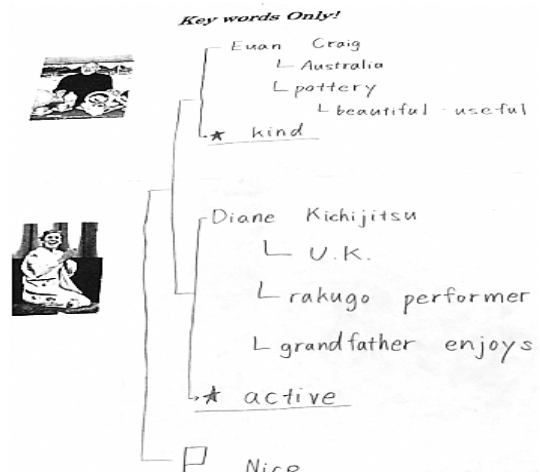 Key words Only!
Euan Craig
Australia
pottery
beautiful · useful
★ kind
Diane Kichijitsu
U.K.
rakugo performer
grandfather enjoys
★ active
P Nice